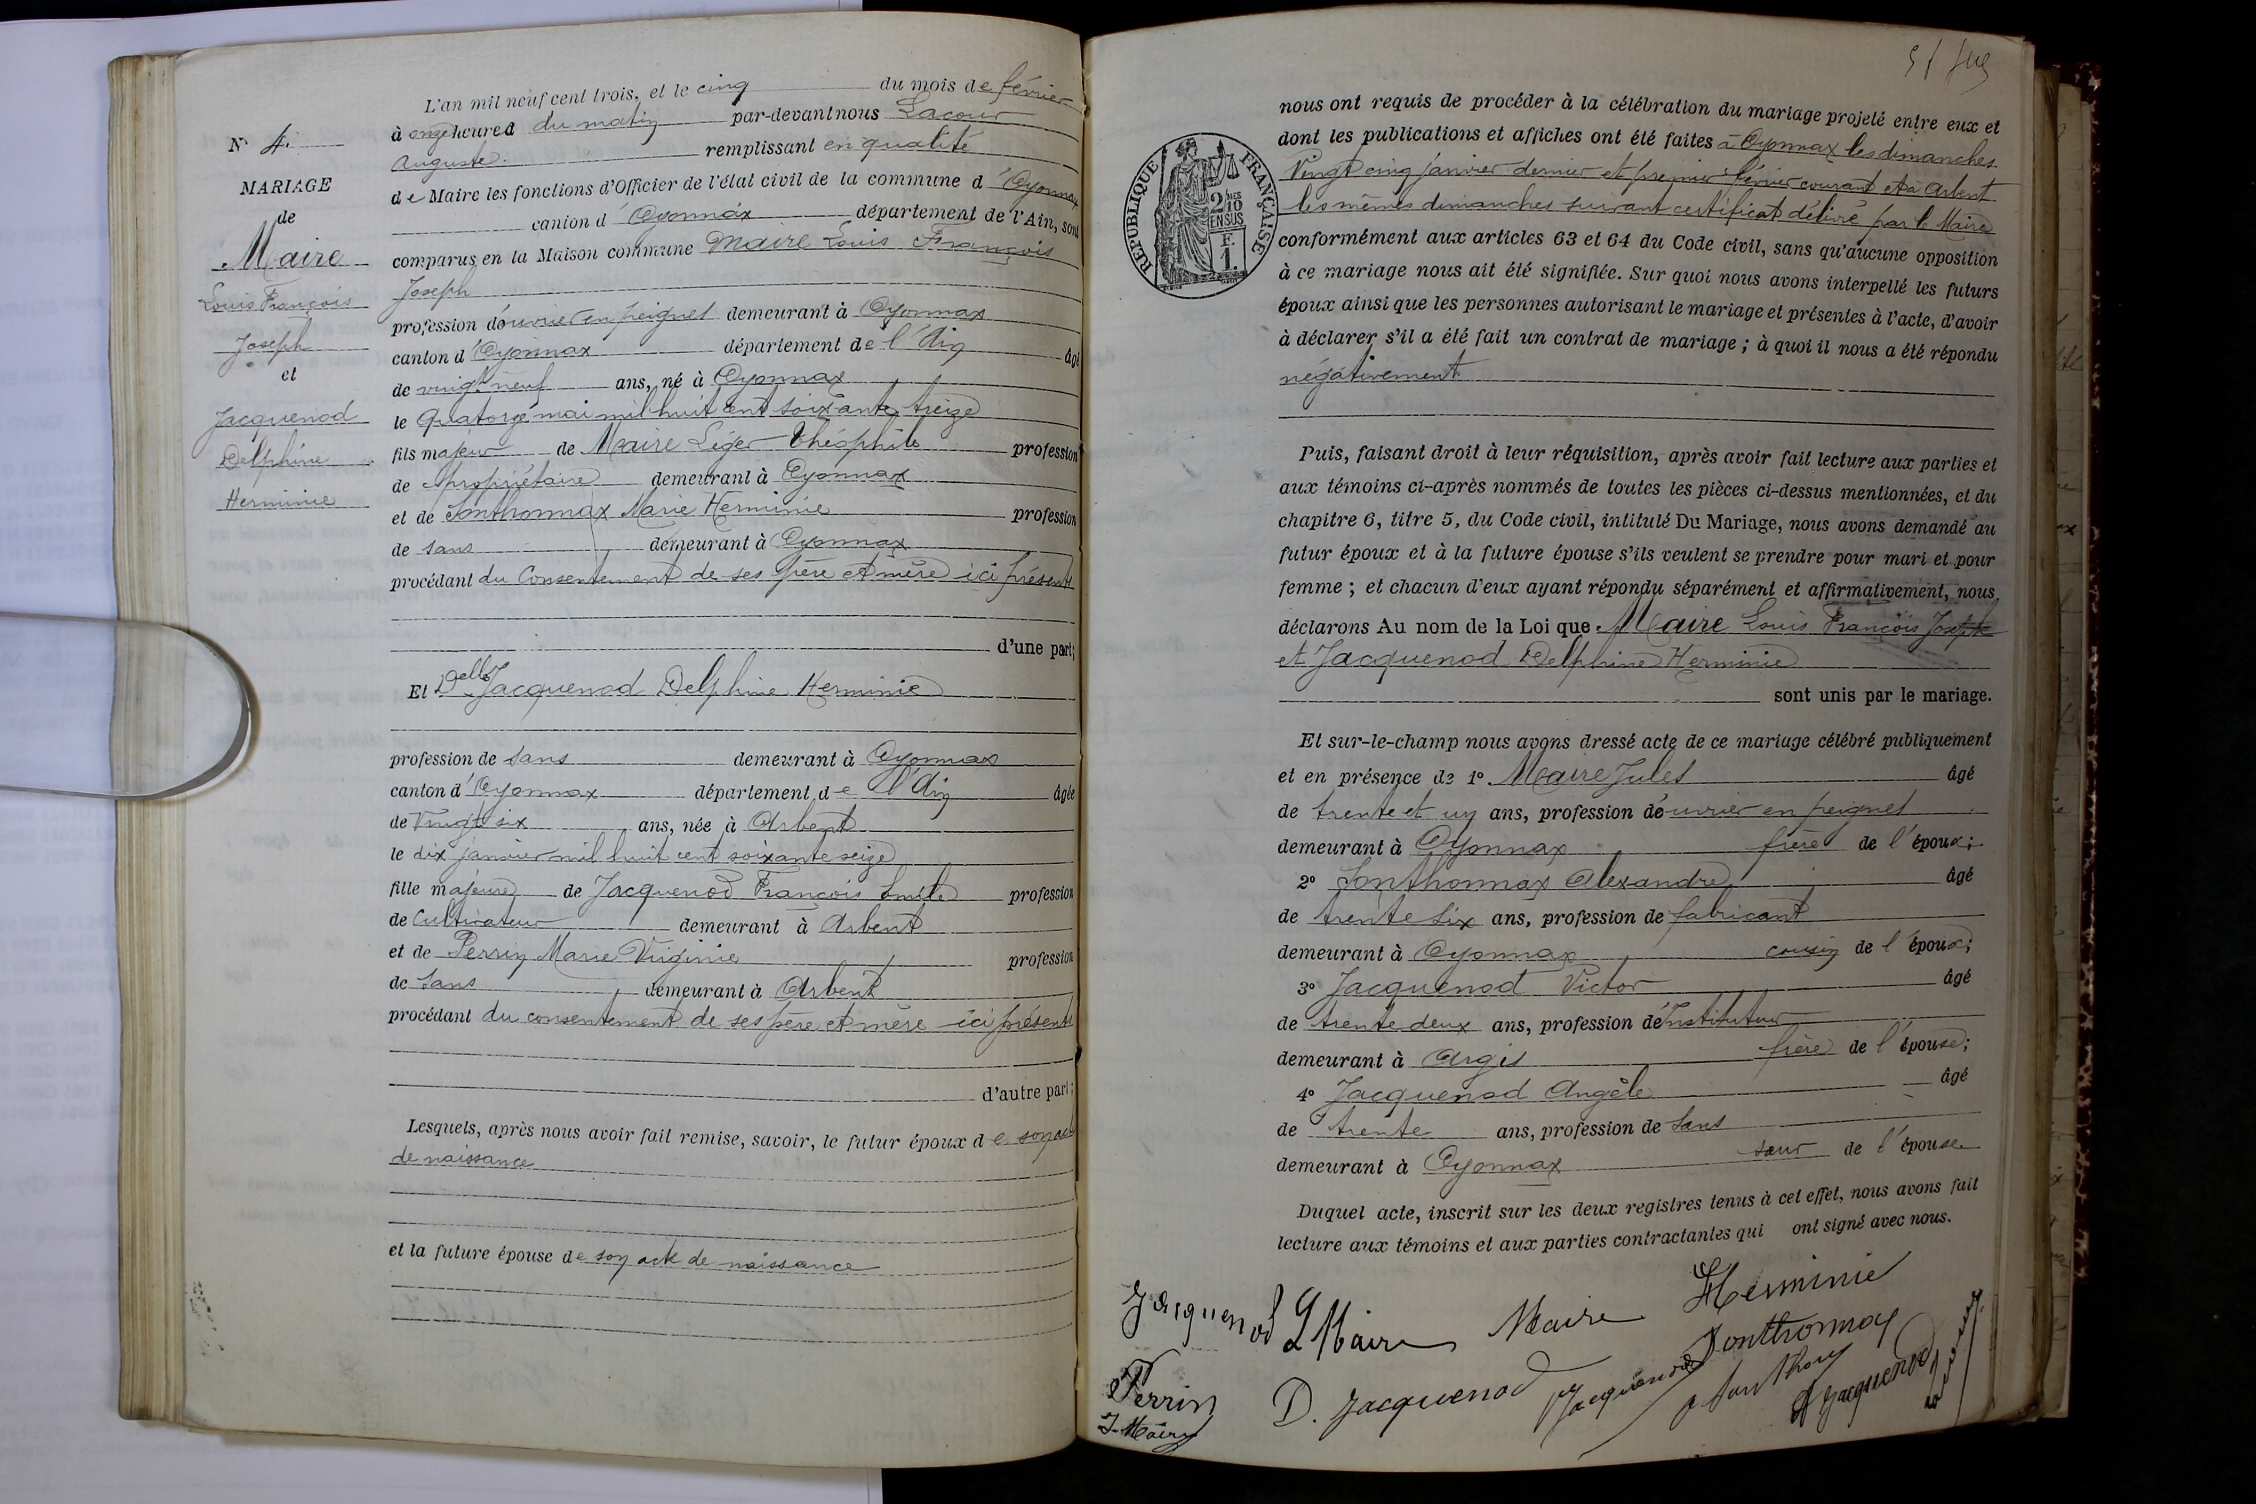 N° 4.
MARIAGE
de
Maire
Louis François
Joseph
et
Jacquenod
Delphine
Herminie
L'an mil neuf cent trois, et le cinq du mois de février
à onze heures du matin par-devant nous Lacour
Auguste. remplissant en qualité
de Maire les fonctions d'Officier de l'état civil de la commune d'Oyonnax
canton d'Oyonnax département de l'Ain, sont
comparus en la Maison commune Maire Louis François
Joseph
profession d'ouvrier en peignes demeurant à Oyonnax
canton d'Oyonnax département de l'Ain âgé
de vingt neuf ans, né à Oyonnax
le quatorze mai mil huit cent soixante treize
fils majeur de Maire Léger Théophile profession
de propriétaire demeurant à Oyonnax
et de Sonthonnax Marie Herminie profession
de sans demeurant à Oyonnax
procédant du consentement de ses père et mère ici présents
d'une part;
Et Delle Jacquenod Delphine Herminie
profession de sans demeurant à Oyonnax
canton d'Oyonnax département de l'Ain âgée
de Vingt six ans, née à Arbent
le dix janvier mil huit cent soixante seize
fille majeure de Jacquenod François Emile profession
de Cultivateur demeurant à Arbent
et de Perrin Marie Virginie profession
de sans demeurant à Arbent
procédant du consentement de ses père et mère ici présents
d'autre part;
Lesquels, après nous avoir fait remise, savoir, le futur époux de son acte
de naissance
et la future épouse de son acte de naissance
51
RÉPUBLIQUE FRANÇAISE
2/10 EN SUS
F.
1.
nous ont requis de procéder à la célébration du mariage projeté entre eux et
dont les publications et affiches ont été faites à Oyonnax les dimanches
Vingt cinq janvier dernier et premier février courant et à Arbent
les mêmes dimanches suivant certificat délivré par le Maire
conformément aux articles 63 et 64 du Code civil, sans qu'aucune opposition
à ce mariage nous ait été signifiée. Sur quoi nous avons interpellé les futurs
époux ainsi que les personnes autorisant le mariage et présentes à l'acte, d'avoir
à déclarer s'il a été fait un contrat de mariage ; à quoi il nous a été répondu
négativement
Puis, faisant droit à leur réquisition, après avoir fait lecture aux parties et
aux témoins ci-après nommés de toutes les pièces ci-dessus mentionnées, et du
chapitre 6, titre 5, du Code civil, intitulé Du Mariage, nous avons demandé au
futur époux et à la future épouse s'ils veulent se prendre pour mari et pour
femme ; et chacun d'eux ayant répondu séparément et affirmativement, nous
déclarons Au nom de la Loi que Maire Louis François Joseph
et Jacquenod Delphine Herminie
sont unis par le mariage.
Et sur-le-champ nous avons dressé acte de ce mariage célébré publiquement
et en présence de 1° Maire Jules âgé
de trente et un ans, profession d'ouvrier en peignes
demeurant à Oyonnax frère de l'époux;
2° Sonthonnax Alexandre âgé
de trente six ans, profession de fabricant
demeurant à Oyonnax cousin de l'époux;
3° Jacquenod Victor âgé
de trente deux ans, profession d'Instituteur
demeurant à Argis frère de l'épouse;
4° Jacquenod Angèle âgé
de trente ans, profession de sans
demeurant à Oyonnax sœur de l'épouse
Duquel acte, inscrit sur les deux registres tenus à cet effet, nous avons fait
lecture aux témoins et aux parties contractantes qui ont signé avec nous.
Jacquenod L Maire Maire Herminie
Sonthonnax
Perrin D. Jacquenod Jacquenod A Jacquenod
J. Maire